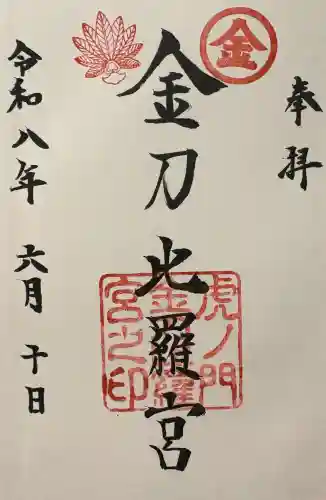 奉拝
金
金刀比羅宮
虎ノ門
金刀比羅
宮之印
令和八年 六月 十日